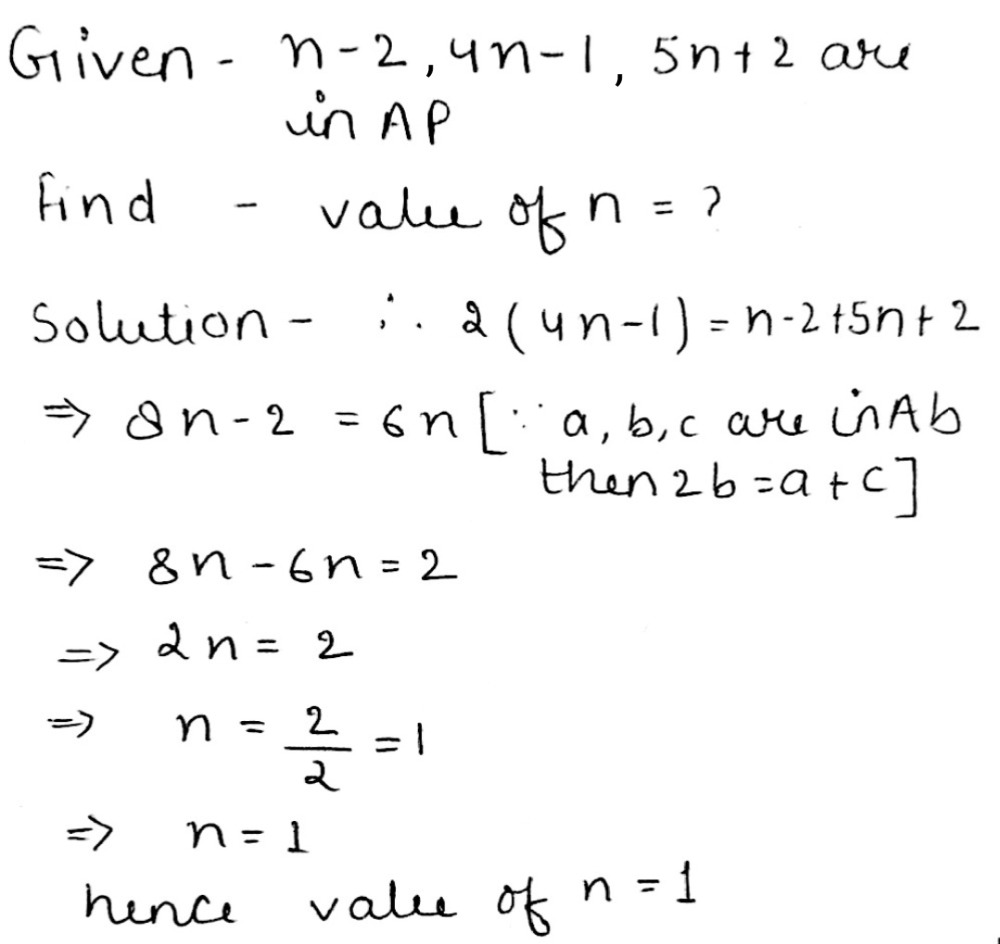 Given - n-2, 4n-1, 5n+2 are
in AP
find - value of n = ?
Solution - ∴ 2(4n-1) = n-2+5n+2
⇒ 8n-2 = 6n [∵ a, b, c are in Ab
then 2b = a + c]
⇒ 8n - 6n = 2
⇒ 2n = 2
⇒ n = 2/2 = 1
⇒ n = 1
hence value of n = 1